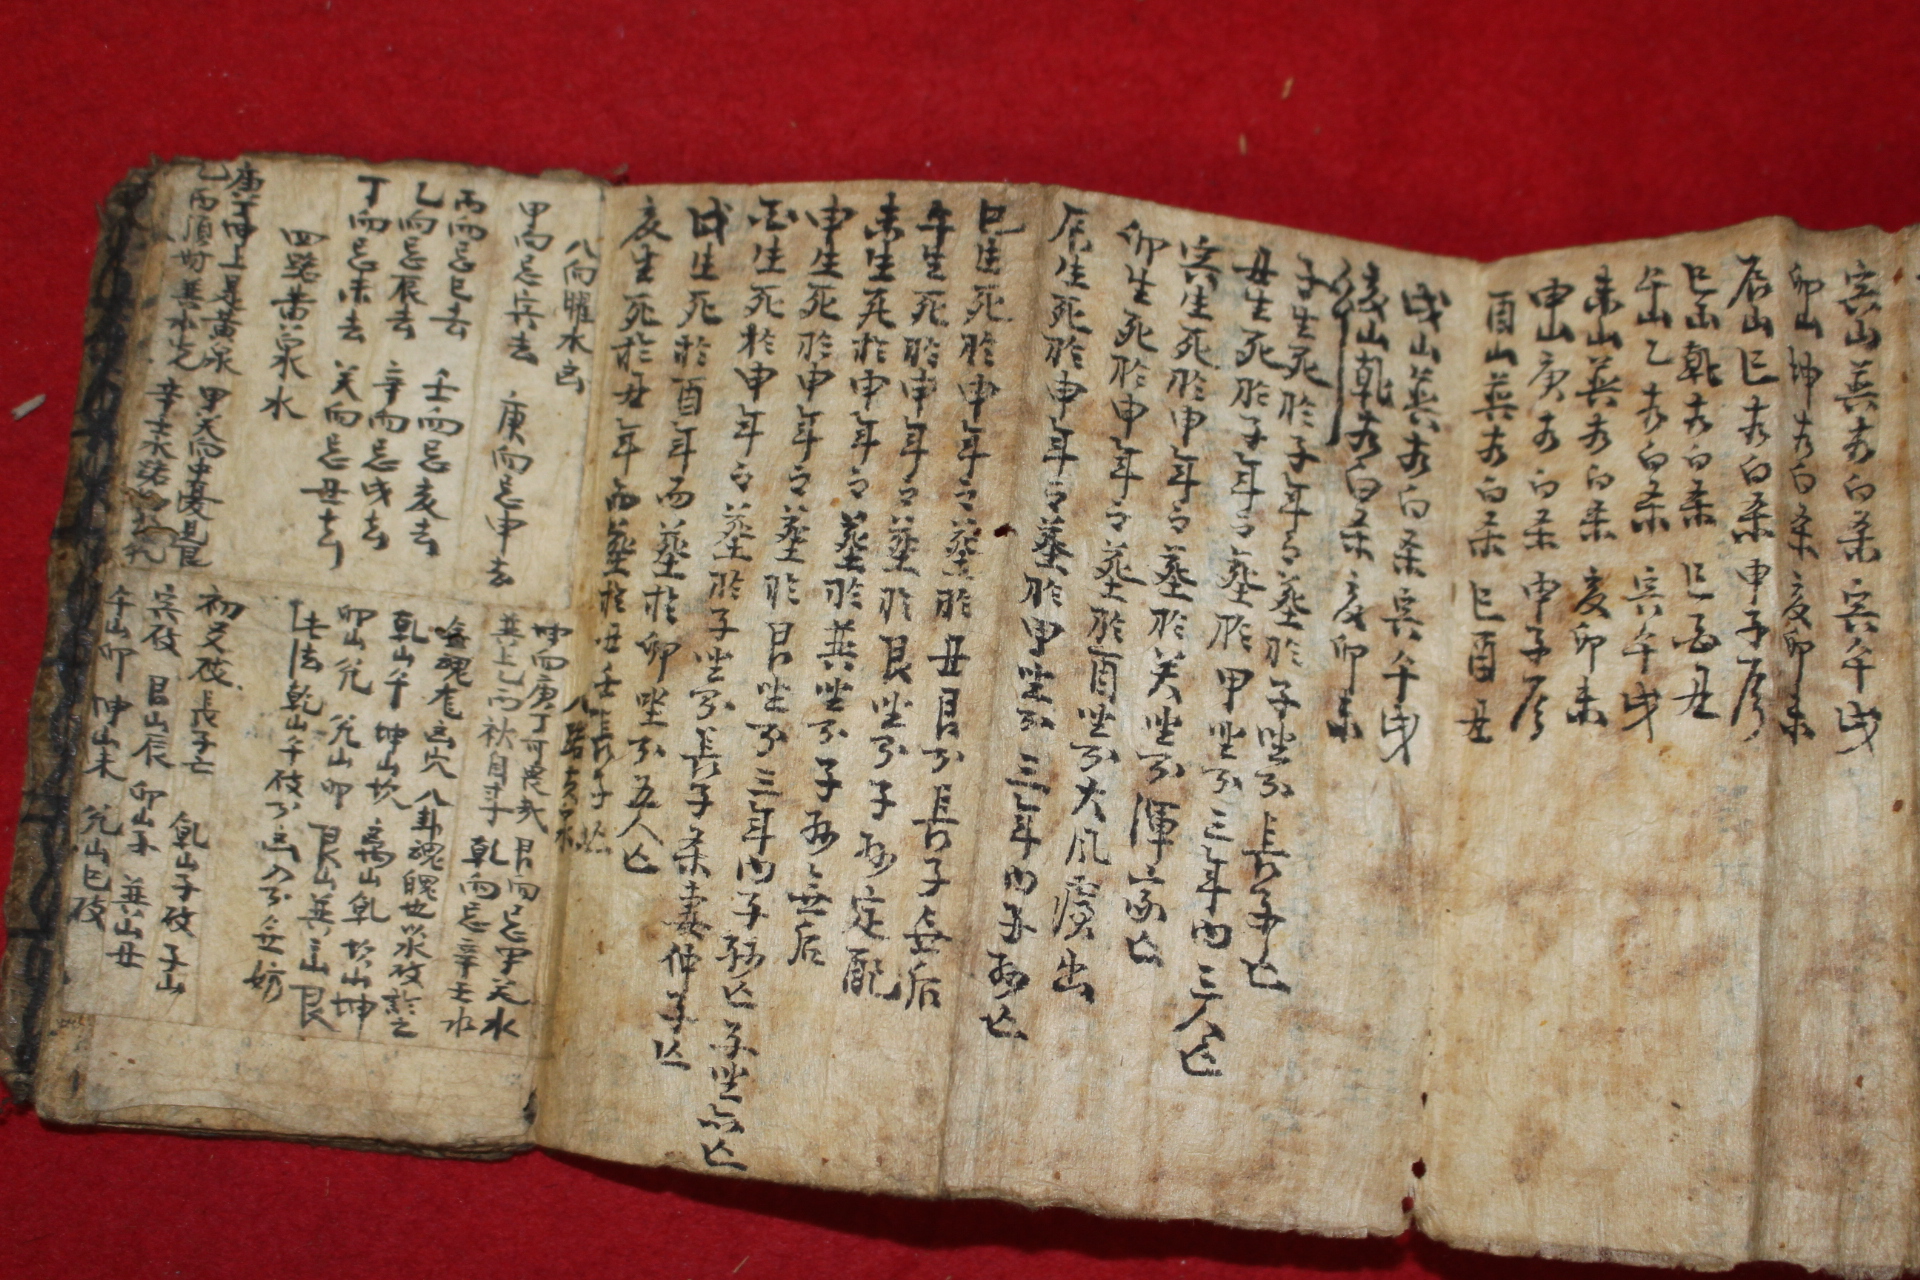 寅山巽方白杀 寅午戌
卯山坤方白杀 亥卯未
辰山巳方白杀 申子辰
巳山乾方白杀 巳酉丑
午山乙方白杀 寅午戌
未山巽方白杀 亥卯未
申山庚方白杀 申子辰
酉山巽方白杀 巳酉丑
戌山巽方白杀 寅午戌
亥山乾方白杀 亥卯未
子生死於子年之葬於子坐不 長子亡
丑生死於子年之葬於甲坐不 三年內三人亡
寅生死於申年之葬於癸坐不 渾家亡
卯生死於申年之葬於酉坐不 大風瘡出
辰生死於申年之葬於甲坐不 三年內子孫亡
巳生死於申年之葬於丑艮不 長子無后
午生死於申年之葬於艮坐不 子孫定配
未生死於申年之葬於巽坐不 子孫無后
申生死於申年之葬於艮坐不 三年內子孫亡 子坐亦亡
酉生死於申年之葬於子坐不 長子杀妻仲子亡
戌生死於酉年而葬於卯坐不 五人亡
亥生死於丑年而葬於丑壬 長子亡
八向曜水凶
甲向忌寅去 庚向忌申去
丙向忌巳去 壬向忌亥去
乙向忌辰去 辛向忌戌去
丁向忌未去 癸向忌丑去
四路黃泉水
庚丁坤上是黃泉
乙丙須防巽水先
甲癸向中憂見艮
坤向庚丁可畏哉 艮向忌甲癸水
乾向忌辛壬水
乾山午 坤山坎 离山乾 坎山坤
卯山兌 兌山卯 艮山巽 巽山艮
初父破 長子亡 乾山子破 子山
寅破 艮山辰 卯山子 巽山丑
午山卯 坤山未 兌山巳破